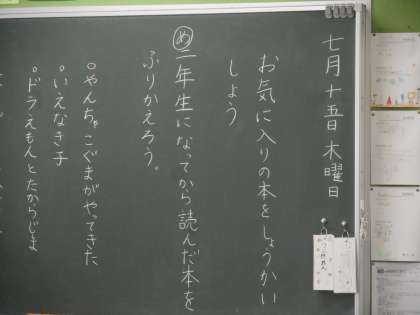 七月十五日 木曜日
お気に入りの本をしょうかい
しよう
め 二年生になってから読んだ本を
ふりかえろう。
○やんちゃこぐまがやってきた
○いえなき子
○ドラえもんとたからじま